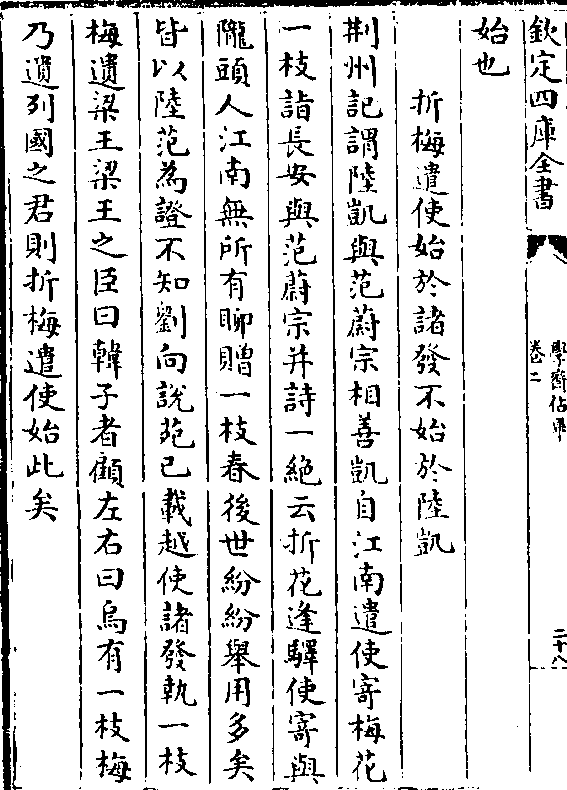 欽定四庫全書
學齋佔畢
卷二
二十八
始也
折梅遣使始於諸發不始於陸凱
荆州記謂陸凱與范蔚宗相善凱自江南遣使寄梅花
一枝詣長安與范蔚宗并詩一絶云折花逢驛使寄與
隴頭人江南無所有聊贈一枝春後世紛紛舉用多矣
皆以陸范為證不知劉向說苑已載越使諸發執一枝
梅遺梁王梁王之臣曰韓子者顧左右曰烏有一枝梅
乃遺列國之君則折梅遣使始此矣